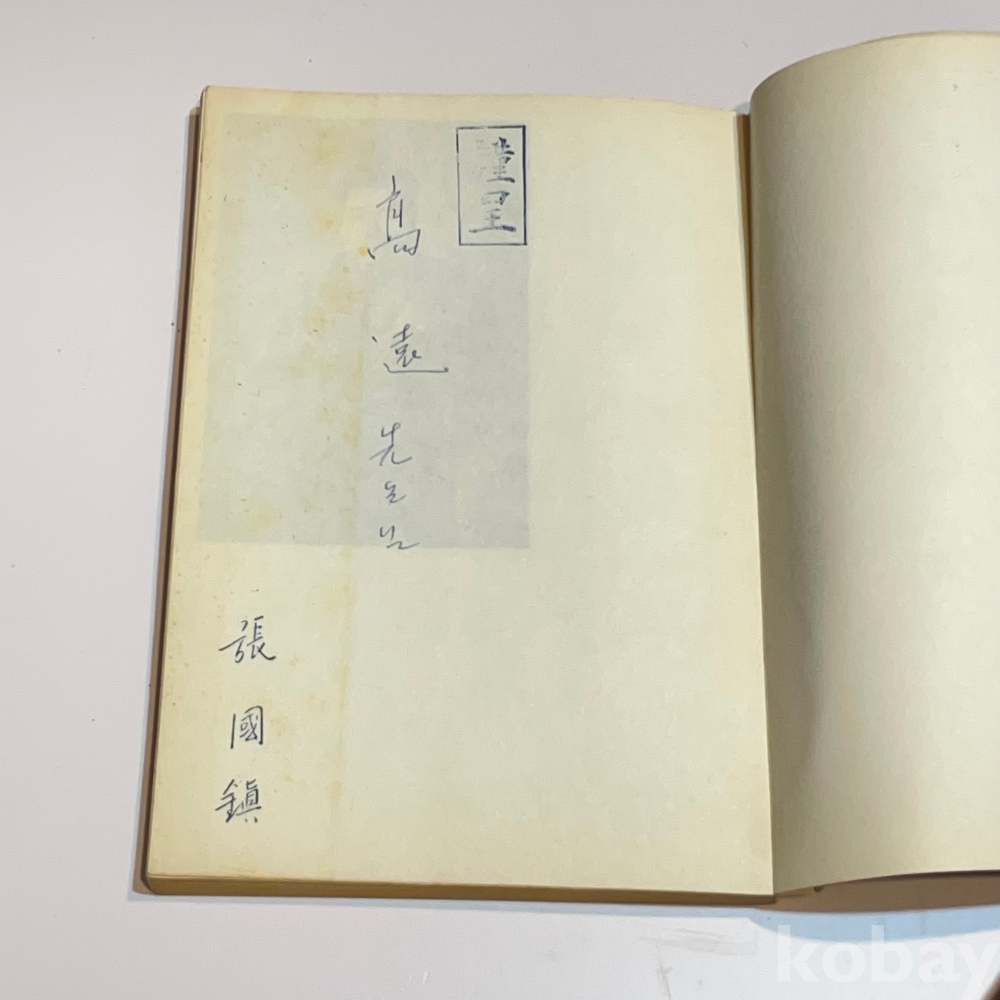 謹呈
高遠先生님
張國鎭
kobay